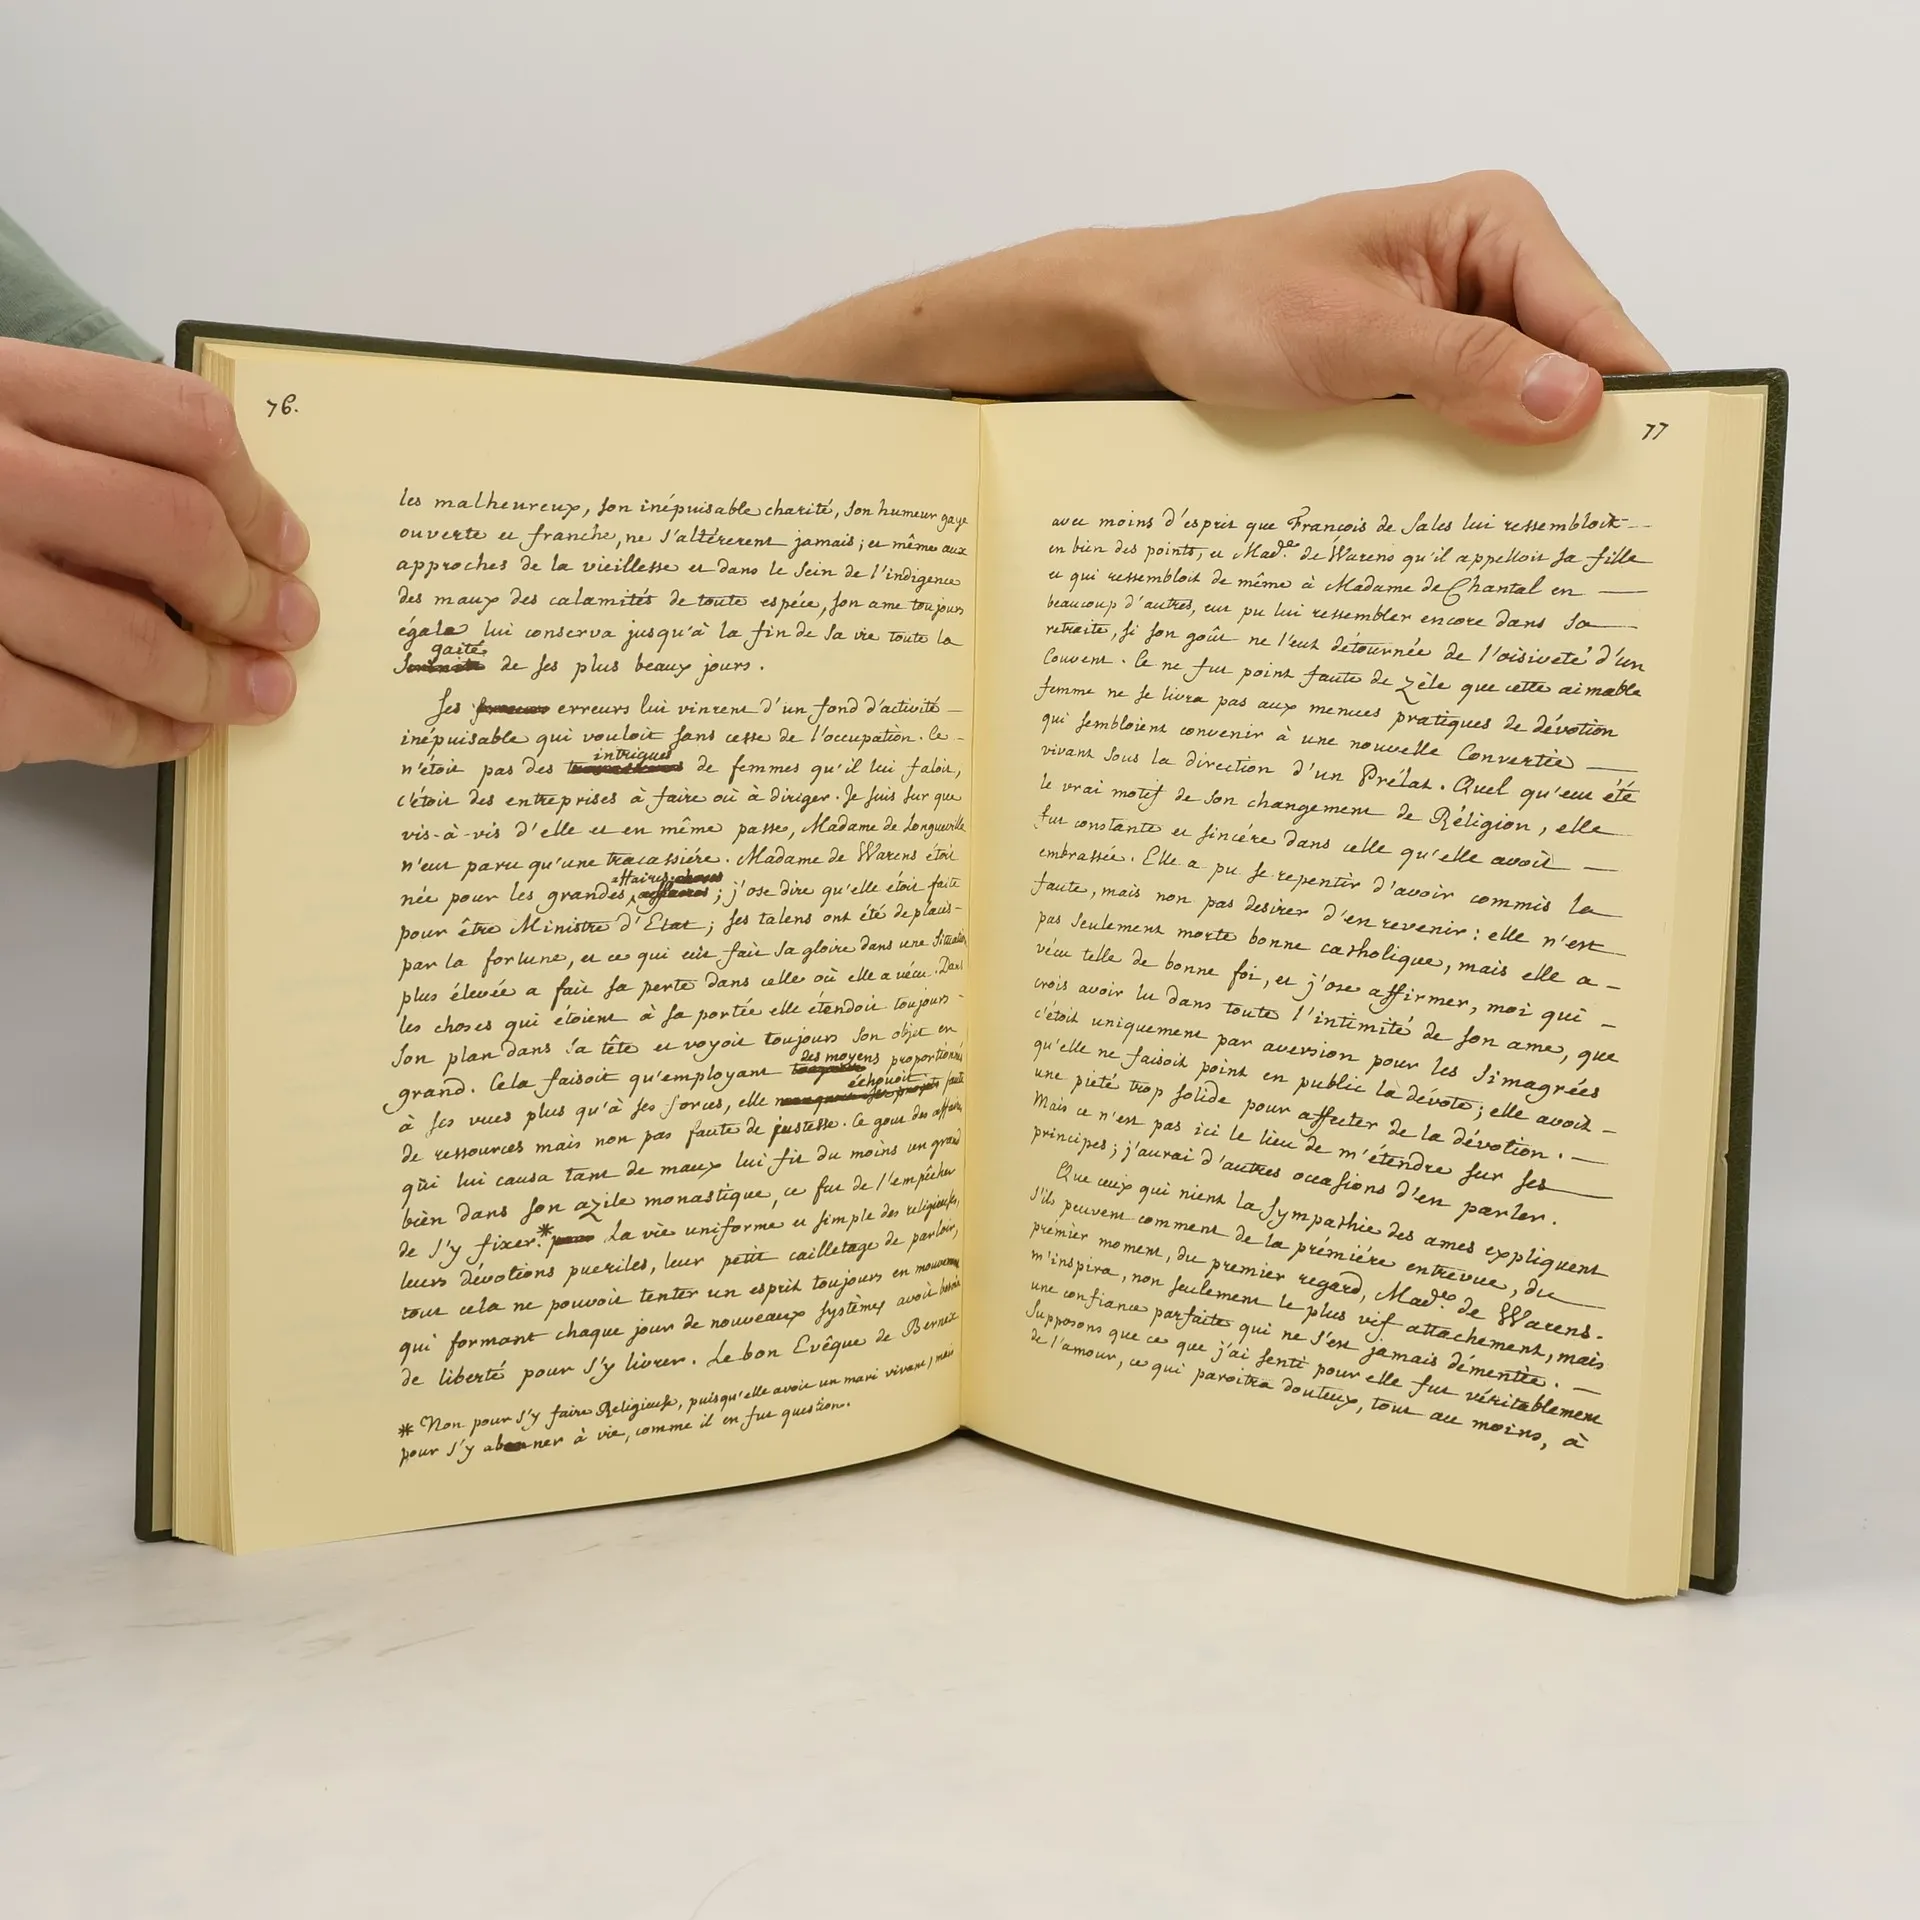 76.
les malheureux, son inépuisable charité, son humeur gaye
ouverte et franche, ne s'altérerent jamais; et même aux
approches de la vieillesse et dans le sein de l'indigence
des maux des calamités de toute espéce, son ame toujours
égale lui conserva jusqu'à la fin de sa vie toute la
gaité
de ses plus beaux jours.
Ses erreurs lui vinrent d'un fond d'activité —
inépuisable qui vouloit sans cesse de l'occupation. Ce -
intrigues
n'étoit pas des de femmes qu'il lui faloit,
c'étoit des entreprises à faire où à diriger. Je suis sur que
vis-à-vis d'elle et en même passe, Madame de Longueville
n'eut paru qu'une tracassiére. Madame de Warens étoit
affaires
née pour les grandes ; j'ose dire qu'elle étoit faite
pour être Ministre d'Etat; ses talens ont été déplacés -
par la fortune, et ce qui eut fait sa gloire dans une situation
plus élevée a fait sa perte dans celle où elle a vécu. Dans
les choses qui étoient à sa portée elle étendoit toujours -
son plan dans sa tête et voyoit toujours son objet en
des moyens proportionnés
grand. Cela faisoit qu'employant
échouoit
à ses vues plus qu'à ses forces, elle faute
de ressources mais non pas faute de justesse. Ce gout des affaires
qui lui causa tant de maux lui fit du moins un grand
bien dans son azile monastique, ce fut de l'empêcher
de s'y fixer.* La vie uniforme et simple des religieuses,
leurs dévotions pueriles, leur petit cailletage de parloir,
tout cela ne pouvoit tenter un esprit toujours en mouvement
qui formant chaque jour de nouveaux systèmes avoit besoin
de liberté pour s'y livrer. Le bon Evêque de Bernex
* Non pour s'y faire Religieuse, puisqu'elle avoit un mari vivant, mais
pour s'y ner à vie, comme il en fut question.
77
avec moins d'esprit que François de Sales lui ressembloit - -
en bien des points, et Made. de Warens qu'il appelloit sa fille
et qui ressembloit de même à Madame de Chantal en —
beaucoup d'autres, eut pu lui ressembler encore dans sa —
retraite, si son goût ne l'eut détournée de l'oisiveté d'un
Couvent. Ce ne fut point faute de zèle que cette aimable
femme ne se livra pas aux menues pratiques de dévotion
qui sembloient convenir à une nouvelle Convertie —
vivant sous la direction d'un Prélat. Quel qu'eut été
le vrai motif de son changement de Réligion, elle
fut constante et sincére dans celle qu'elle avoit —
embrassée. Elle a pu se repentir d'avoir commis la
faute, mais non pas desirer d'en revenir: elle n'est
pas seulement morte bonne catholique, mais elle a -
vécu telle de bonne foi, et j'ose affirmer, moi qui -
crois avoir lu dans toute l'intimité de son ame, que
c'étoit uniquement par aversion pour les simagrées
qu'elle ne faisoit point en public la dévote; elle avoit -
une piété trop solide pour affecter de la dévotion. —
Mais ce n'est pas ici le lieu de m'étendre sur ses —
principes; j'aurai d'autres occasions d'en parler.
Que ceux qui nient la sympathie des ames expliquent
s'ils peuvent comment de la prémiére entrevue, du —
prémier moment, du premier regard, Made. de Warens.
m'inspira, non seulement le plus vif attachement, mais
une confiance parfaite qui ne s'est jamais démentie. —
Supposons que ce que j'ai senti pour elle fut véritablement
de l'amour, ce qui paroitra douteux, tout au moins, à